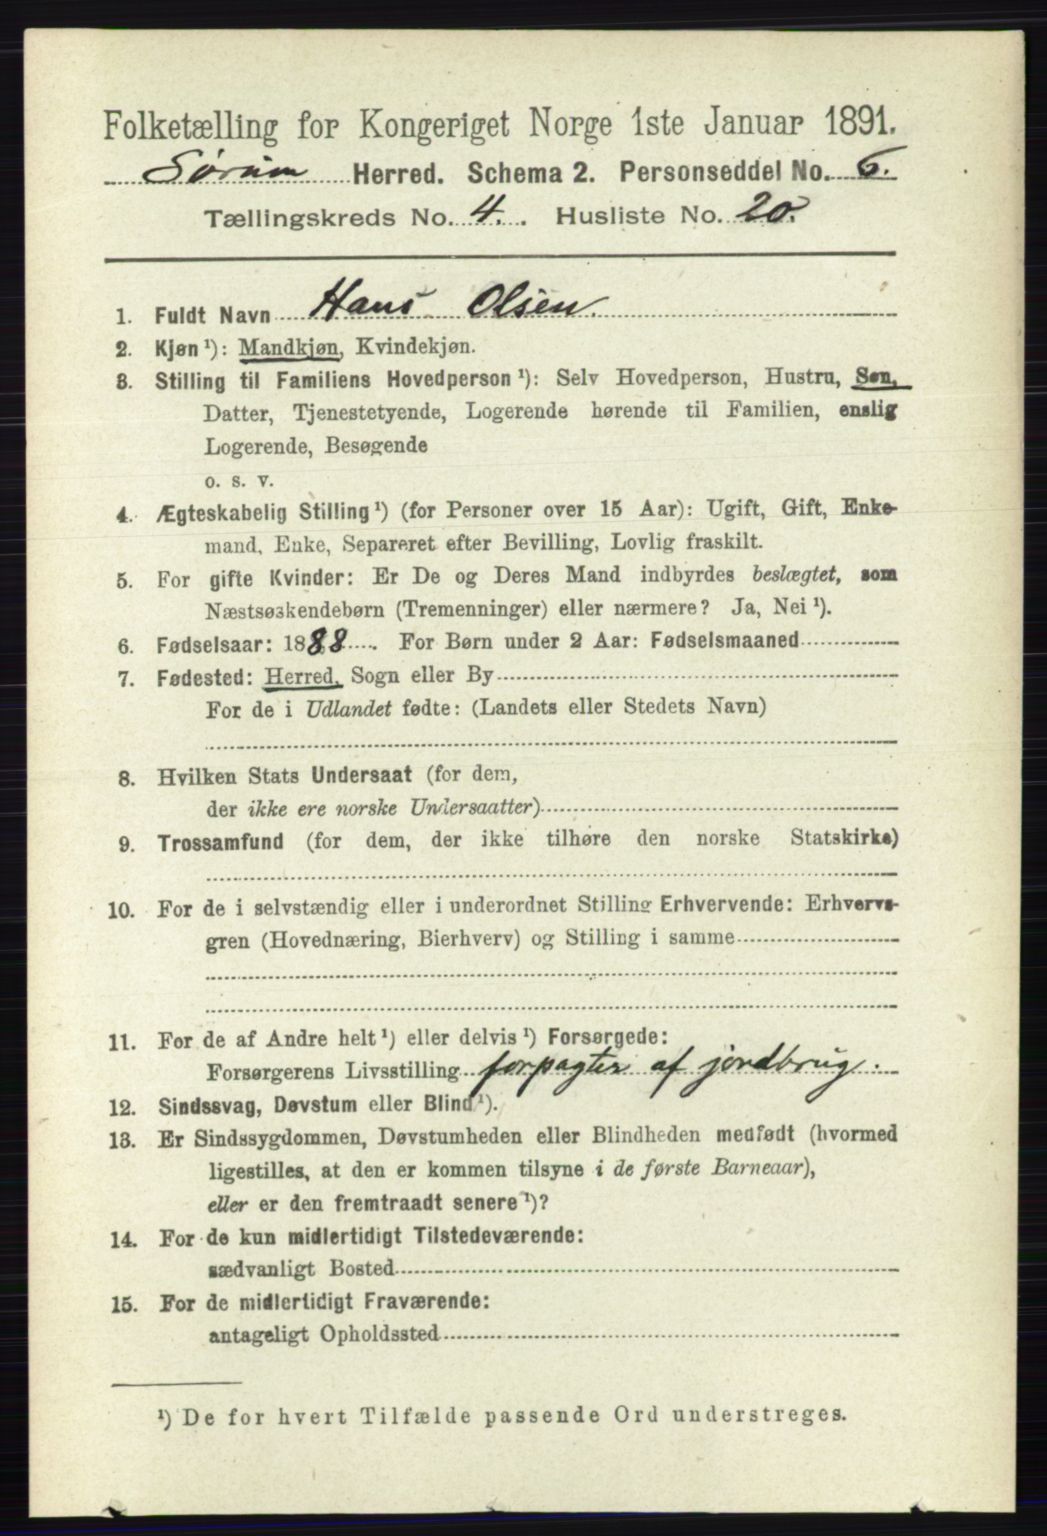 Folketælling for Kongeriget Norge 1ste Januar 1891.
Sørum Herred. Schema 2. Personseddel No. 6.
Tællingskreds No. 4. Husliste No. 20.
1. Fuldt Navn Hans Olsen.
2. Kjøn ¹): Mandkjøn, Kvindekjøn.
3. Stilling til Familiens Hovedperson ¹): Selv Hovedperson, Hustru, Søn,
Datter, Tjenestetyende, Logerende hørende til Familien, enslig
Logerende, Besøgende
o. s. v.
4. Ægteskabelig Stilling ¹) (for Personer over 15 Aar): Ugift, Gift, Enke-
mand, Enke, Separeret efter Bevilling, Lovlig fraskilt.
5. For gifte Kvinder: Er De og Deres Mand indbyrdes beslægtet, som
Næstsøskendebørn (Tremenninger) eller nærmere? Ja, Nei ¹).
6. Fødselsaar: 1888. For Børn under 2 Aar: Fødselsmaaned
7. Fødested: Herred, Sogn eller By
For de i Udlandet fødte: (Landets eller Stedets Navn)
8. Hvilken Stats Undersaat (for dem,
der ikke ere norske Undersaatter)
9. Trossamfund (for dem, der ikke tilhøre den norske Statskirke)
10. For de i selvstændig eller i underordnet Stilling Erhvervende: Erhvervs-
gren (Hovednæring, Bierhverv) og Stilling i samme
11. For de af Andre helt ¹) eller delvis ¹) Forsørgede:
Forsørgerens Livsstilling forpagter af jordbrug.
12. Sindssvag, Døvstum eller Blind ¹).
13. Er Sindssygdommen, Døvstumheden eller Blindheden medfødt (hvormed
ligestilles, at den er kommen tilsyne i de første Barneaar),
eller er den fremtraadt senere ¹)?
14. For de kun midlertidigt Tilstedeværende:
sædvanligt Bosted
15. For de midlertidigt Fraværende:
antageligt Opholdssted
¹) De for hvert Tilfælde passende Ord understreges.